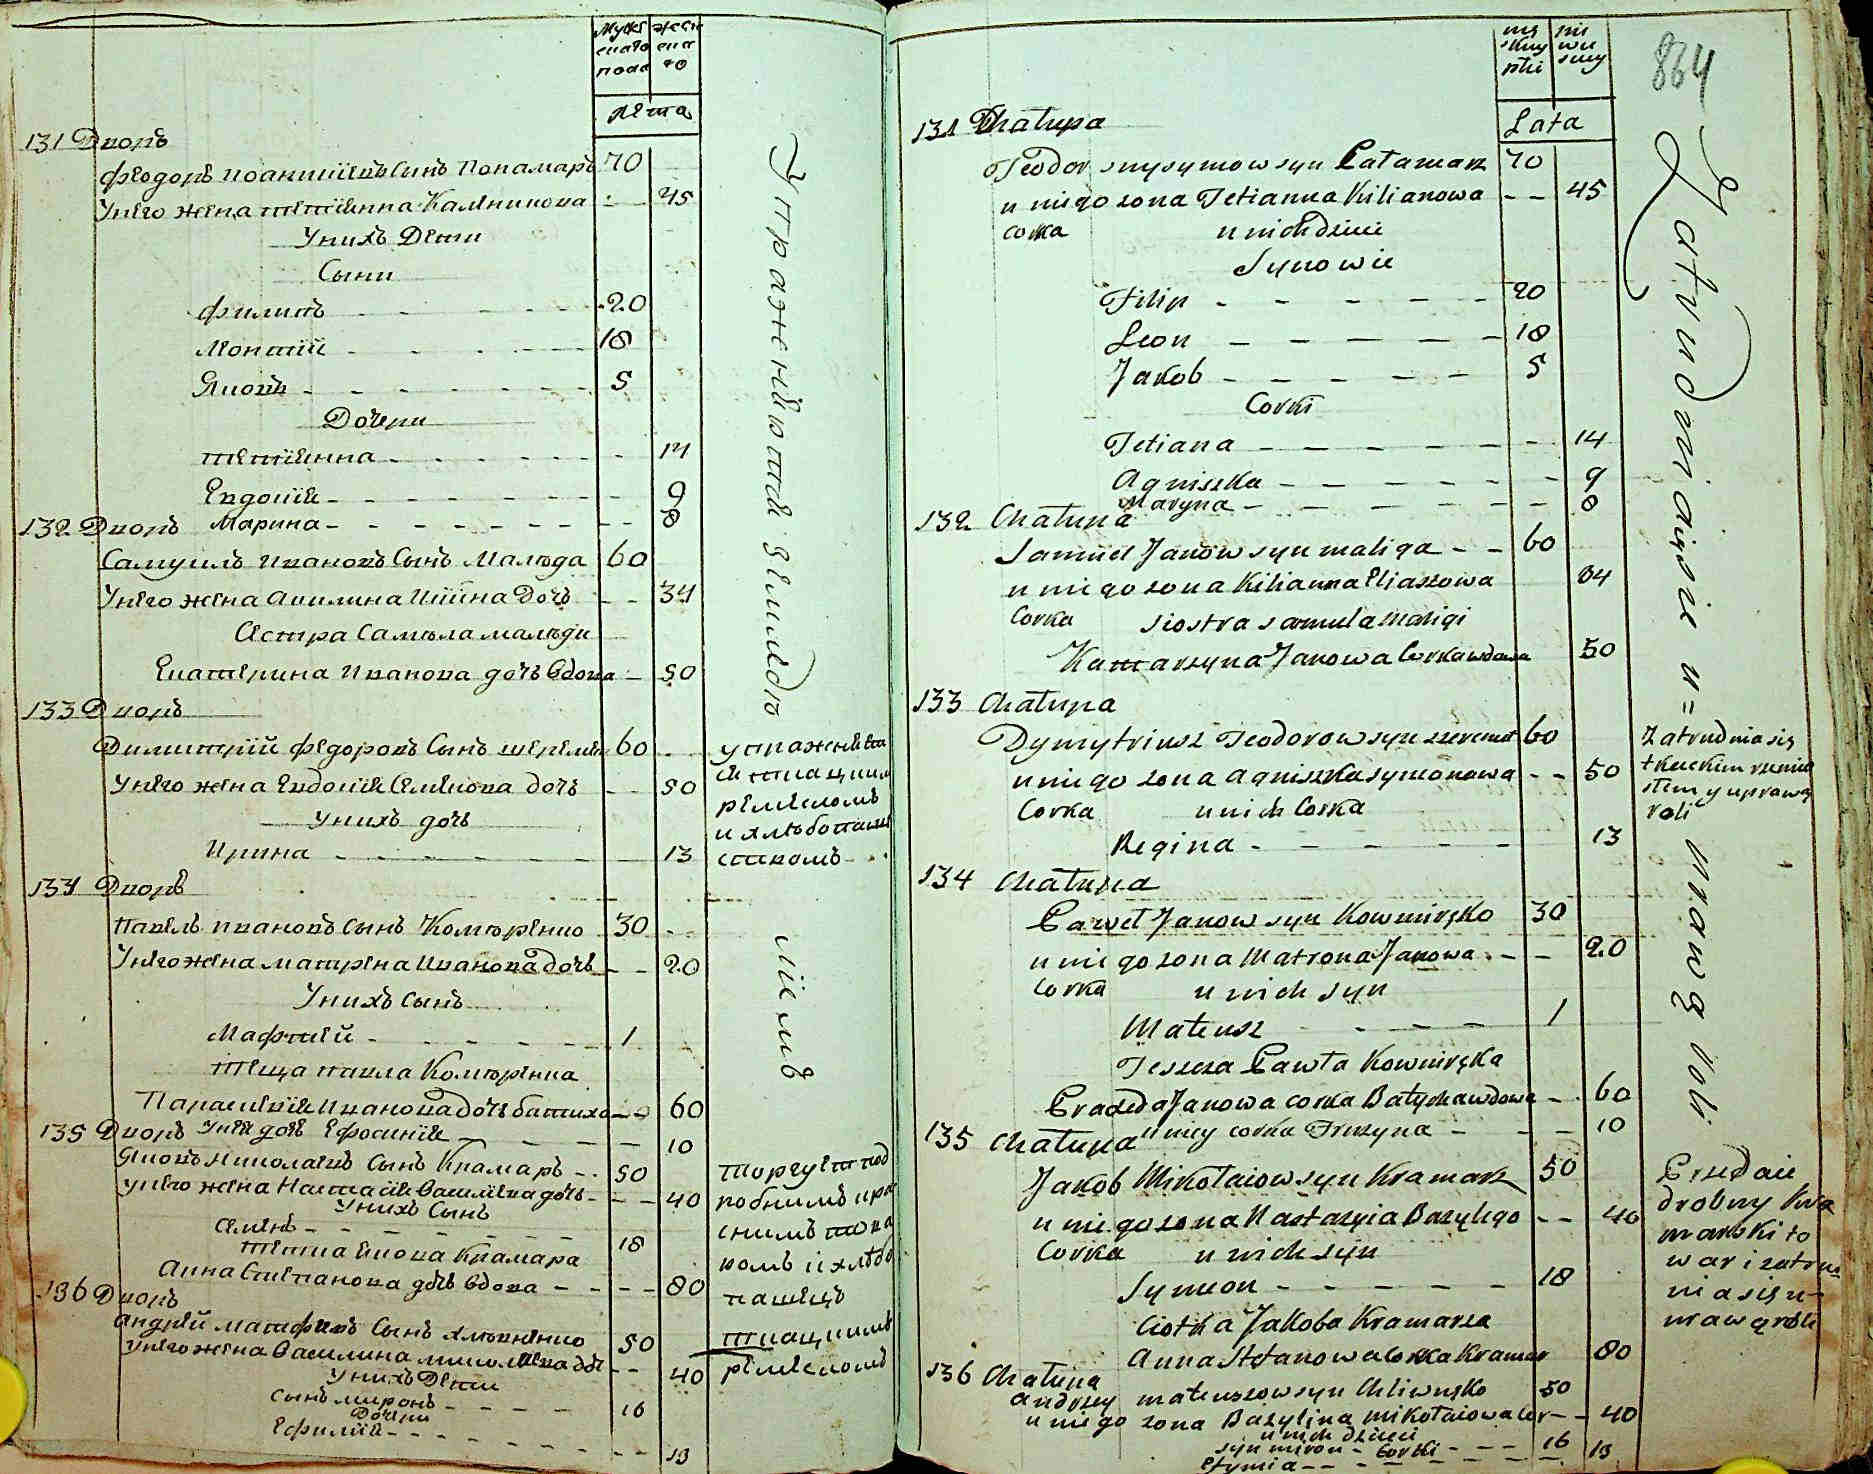 Мужескаго пола
женскаго
Лѣта
131 Дворъ
Феодоръ Иоанникиевъ Синъ Понамаръ 70
Унего жена Татиянна Калникова - 45
Унихъ Дети
Сыни
Филипъ - 20
Леонтий - 18
Яковъ - 5
Дочери
Татиянна - 14
Евдокия - 9
Марина - 8
132 Дворъ
Самуилъ Ивановъ Сынъ Малюда 60
Унего жена Акилина Илиина дочь - 34
Сестра Самоила малюди
Екатерина Иванова дочь Вдова - 50
133 Дворъ
Димитрий Федоровъ Сынъ шеремет 60
Унего жена Евдокия Семенова дочь - 50
Унихъ дочь
Ирина - 13
134 Дворъ
Павелъ Ивановъ Сынъ 30
Унего жена матрена Иванова дочь - 20
Унихъ Сынъ
Мафтей - 1
Теща павла
Параскевия Иванова дочь - 60
Унея дочь Ефросиния - 10
135 Дворъ
Яковъ Николаевъ Сынъ Крамаръ - 50
унего жена Настасия Василиева дочь - 40
Унихъ Сынъ
Семенъ - 18
Тетка Якова Крамара
Анна Степанова дочь вдова - 80
136 Дворъ
Андрей матфеевъ Сынъ 50
унего жена Василина николаева доч - 40
Унихъ Дети
Сынъ миронъ - 16
Дочери
Ефимия - 13
Упражняются земледелиемъ
упражняется ткацким
ремесломъ
и хлебопаше
ством
торгует под
робнимъ кра
снимъ това
ромъ и хлебо
пашецъ
ткацкимъ
ремесломъ
864
męskiey płci
niewiesciey
Lata
131 Chałupa
Teodor syn Palamarz 70
u niego zona Tetianna Kilianowa - - 45
corka
u nich dzieci
Synowie
Filip - 20
Leon - 18
Jakob - 5
Corki
Tetiana - 14
Agniszka - 9
Maryna - 8
132 Chałupa
Samuel Janow syn maliga - - 60
u niego zona Kilianna Eliaszowa 34
Corka
siostra samula maligi
Katarzyna Janowa Corka wdowa 50
133 Chałupa
Dymytriusz Teodorow syn szeremet 60
u niego zona agniszka symonowa - - 50
Corka
u nich Corka
Regina - 13
134 Chałupa
Paweł Janow syn Kowniręko 30
u niego zona Matrona Janowa - - 20
Corka
u nich syn
Mateusz - 1
Teszcza Pawła Kowniręka
Praxeda Janowa corka Batycha wdowa - 60
u niey corka Fruzyna - 10
135 Chałupa
Jakob Mikołaiow syn Kramarz 50
u niego zona Nastazyia Bazylego - - 40
Corka
u nich syn
Symeon - 18
Ciotka Jakoba Kramarza
Anna Stefanowa Corka Kramar 80
136 Chałupa
andrzey mateuszow syn Chliwnęko 50
u niego zona Bazylina mikołaiowa Cor - - 40
u nich dzieci
syn miron - 16
Corki
Efymia - 13
Zatrudniaią sie uprawą roli
Zatrudnia się
tkackim rzemie
słem y uprawą
roli
Przedaie
drobny kra
marski to
war i zatru
nia się u-
prawą roli